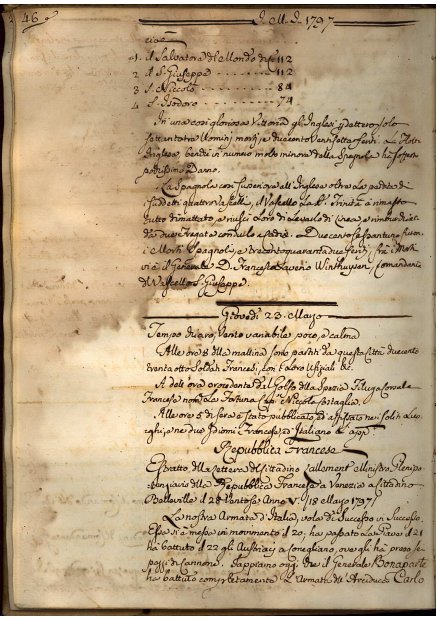 46
A. M. D. 1797
cioè
1. il Salvatore del Mondo di 112
2. il S. Giuseppe 112
3. S. Niccolò 84
4. S. Isidoro 74
In una così gloriosa Vittoria gl'Inglesi perdettero solo
settantatre Uomini morti, e duecento ventisette feriti. La Flotta
Inglese, bendi in numero molto minore dalla Spagnola ha sofferto
pochissimo Danno.
La Spagnola così Superiore all'Inglese oltre la perdita di
suddetti quattro Vascelli, il Vascello la S. Trinità è rimasto
tutto dimattato, e riuscì loro di levarlo di linea a rimorchio
da due Fregate con molo a stadie. Duecento sessantuno furono
i Morti Spagnoli, e trecentoquarantadue feriti, fra i Morti
vi è il Generale D. Francesco Saverio Winthuysen, Comandante
del Vascello S. Giuseppe.
Giovedì 23. Marzo
Tempo chiaro, Vento variabile poco, e calma
Alle ore 8 della mattina sono partiti da questa Città duecento
trenta otto Soldati Francesi, con l'altro Uffiziali &c.
A dett'ora proveniente dal Golfo della Spezia Filuga Corsale
Francese nomata La Fortuna Cap. Niccola Bataglia.
Alle ore 5 di sera è stato pubblicato ed affissato nei soliti Luo-
ghi, e ne due Idiomi Francese, ed Italiano l'app.
Repubblica Francese
Estratto della lettera del Cittadino Lallement Ministro Plenipo-
tenziario della Repubblica Francese a Venezia al Cittadino
Belleville il 28 Ventoso Anno V. (18 Marzo 1797)
La nostra Armata d'Italia, vola di Successo in Successo.
Essa si è messa in movimento il 20; ha passato la Piave il 21
ha battuto il 22 gli Austriaci a Conegliano, ove gli ha preso 6
pezzi di Cannone. Sappiamo oggi che il Generale Bonaparte
ha battuto completamente l'Armata dell'Arciduca Carlo